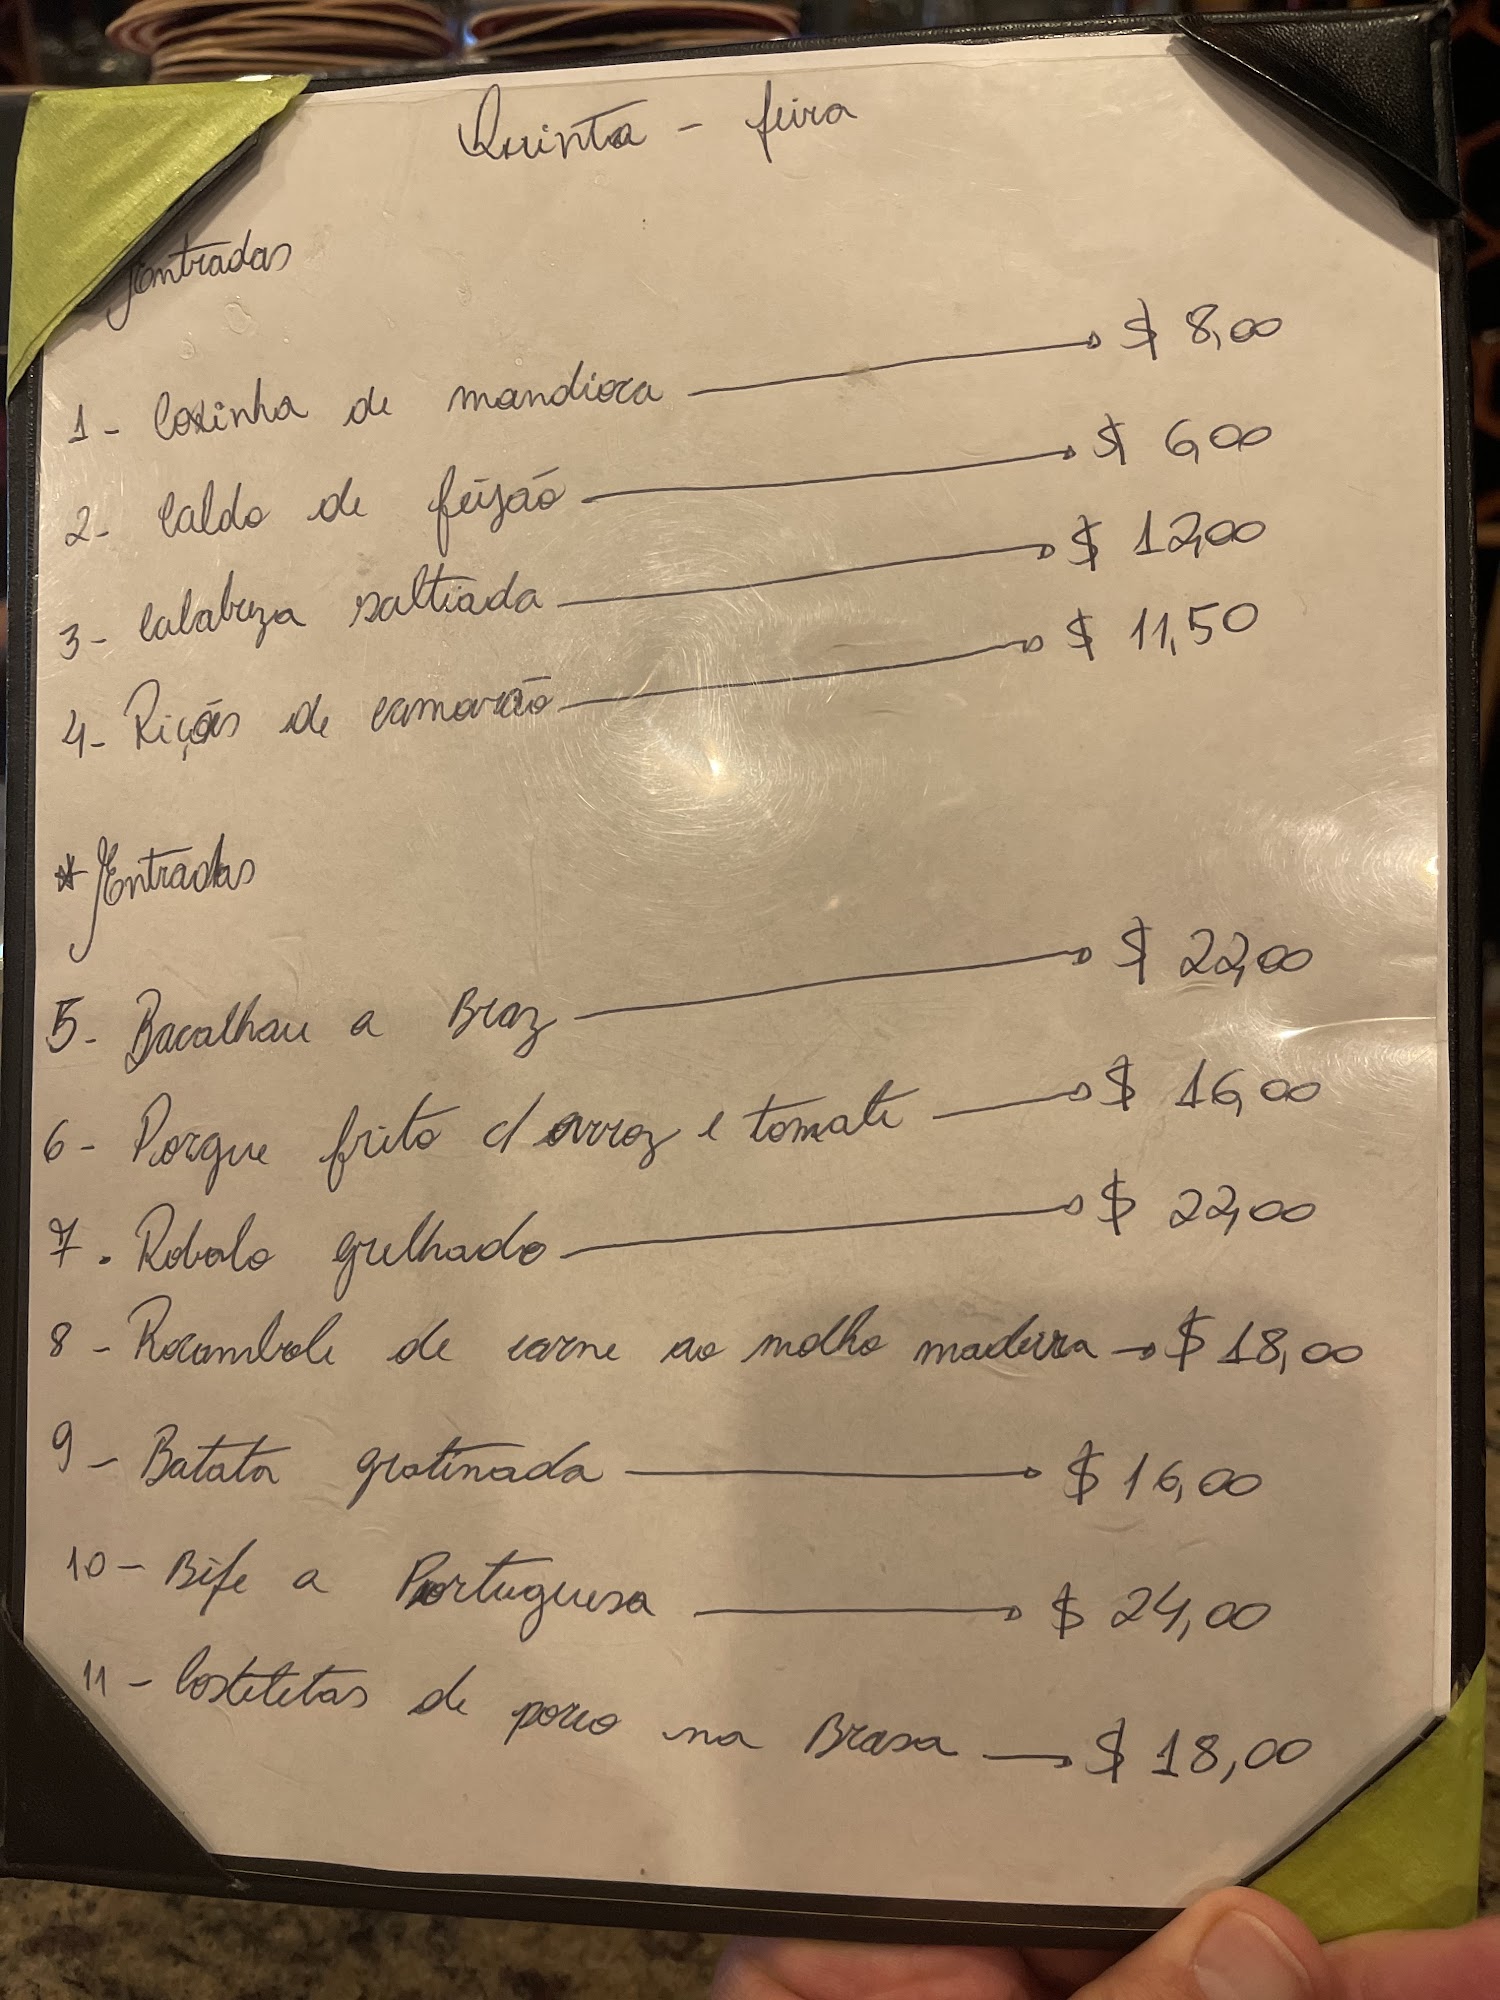 Quinta - feira
Entradas
1 - Coxinha de mandioca $ 8,00
2 - Caldo de feijão $ 6,00
3 - Calabreza saltiada $ 12,00
4 - Riçóis de camarão $ 11,50
* Entradas
5 - Bacalhau a Braz $ 22,00
6 - Porque frito c/ arroz e tomate $ 16,00
7 . Robalo grelhado $ 22,00
8 - Rocambole de carne ao molho madeira $ 18,00
9 - Batata gratinada $ 16,00
10 - Bife a Portuguesa $ 24,00
11 - Costeletas de porco na Brasa $ 18,00